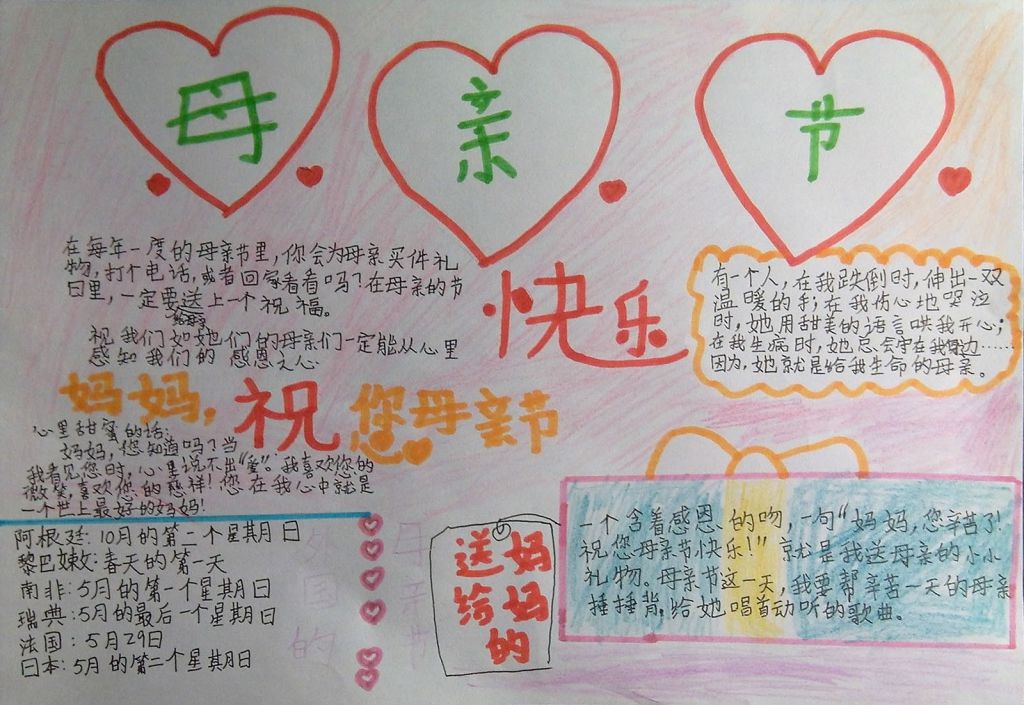 母 亲 节
在每年一度的母亲节里，你会为母亲买件礼
物，打个电话，或者回家看看吗？在母亲的节
日里，一定要送上一个祝福。
给母亲
祝我们如她们的母亲们一定能从心里
感知我们的感恩之心
快乐
有一个人，在我跌倒时，伸出一双
温暖的手；在我伤心地哭泣
时，她用甜美的语言哄我开心；
在我生病时，她总会守在我身边……
因为，她就是给我生命的母亲。
妈妈，祝您母亲节
心里甜蜜的话：
妈妈，您知道吗？当
我看见您时，心里说不出“爱”。我喜欢您的
微笑，喜欢您的慈祥！您在我心中就是
一个世上最好的妈妈！
阿根廷：10月的第二个星期日
黎巴嫩：春天的第一天
南非：5月的第一个星期日
瑞典：5月的最后一个星期日
法国：5月29日
日本：5月的第二个星期日
外 母
国 亲
的 节
送 妈
给 妈
的
一个含着感恩的吻，一句“妈妈，您辛苦了！
祝您母亲节快乐！”就是我送母亲的小小
礼物。母亲节这一天，我要帮辛苦一天的母亲
捶捶背，给她唱首动听的歌曲。